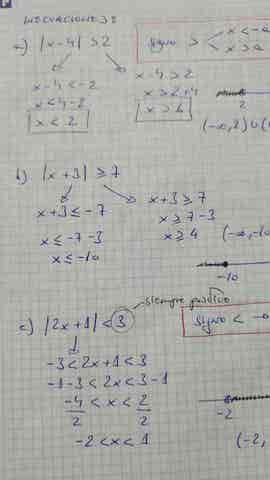 INECUACIONES
a) |x-4| > 2
x-4 < -2
x < 4-2
x < 2
x-4 > 2
x > 2+4
x > 6
signo >
x < -a
x > a
2
(-∞, 2) ∪ (
b) |x+3| ≥ 7
x+3 ≤ -7
x ≤ -7-3
x ≤ -10
x+3 ≥ 7
x ≥ 7-3
x ≥ 4
(-∞, -10
-10
c) |2x+1| < 3
siempre positivo
signo <
-3 < 2x+1 < 3
-1-3 < 2x < 3-1
-4/2 < x < 2/2
-2 < x < 1
-2
(-2,